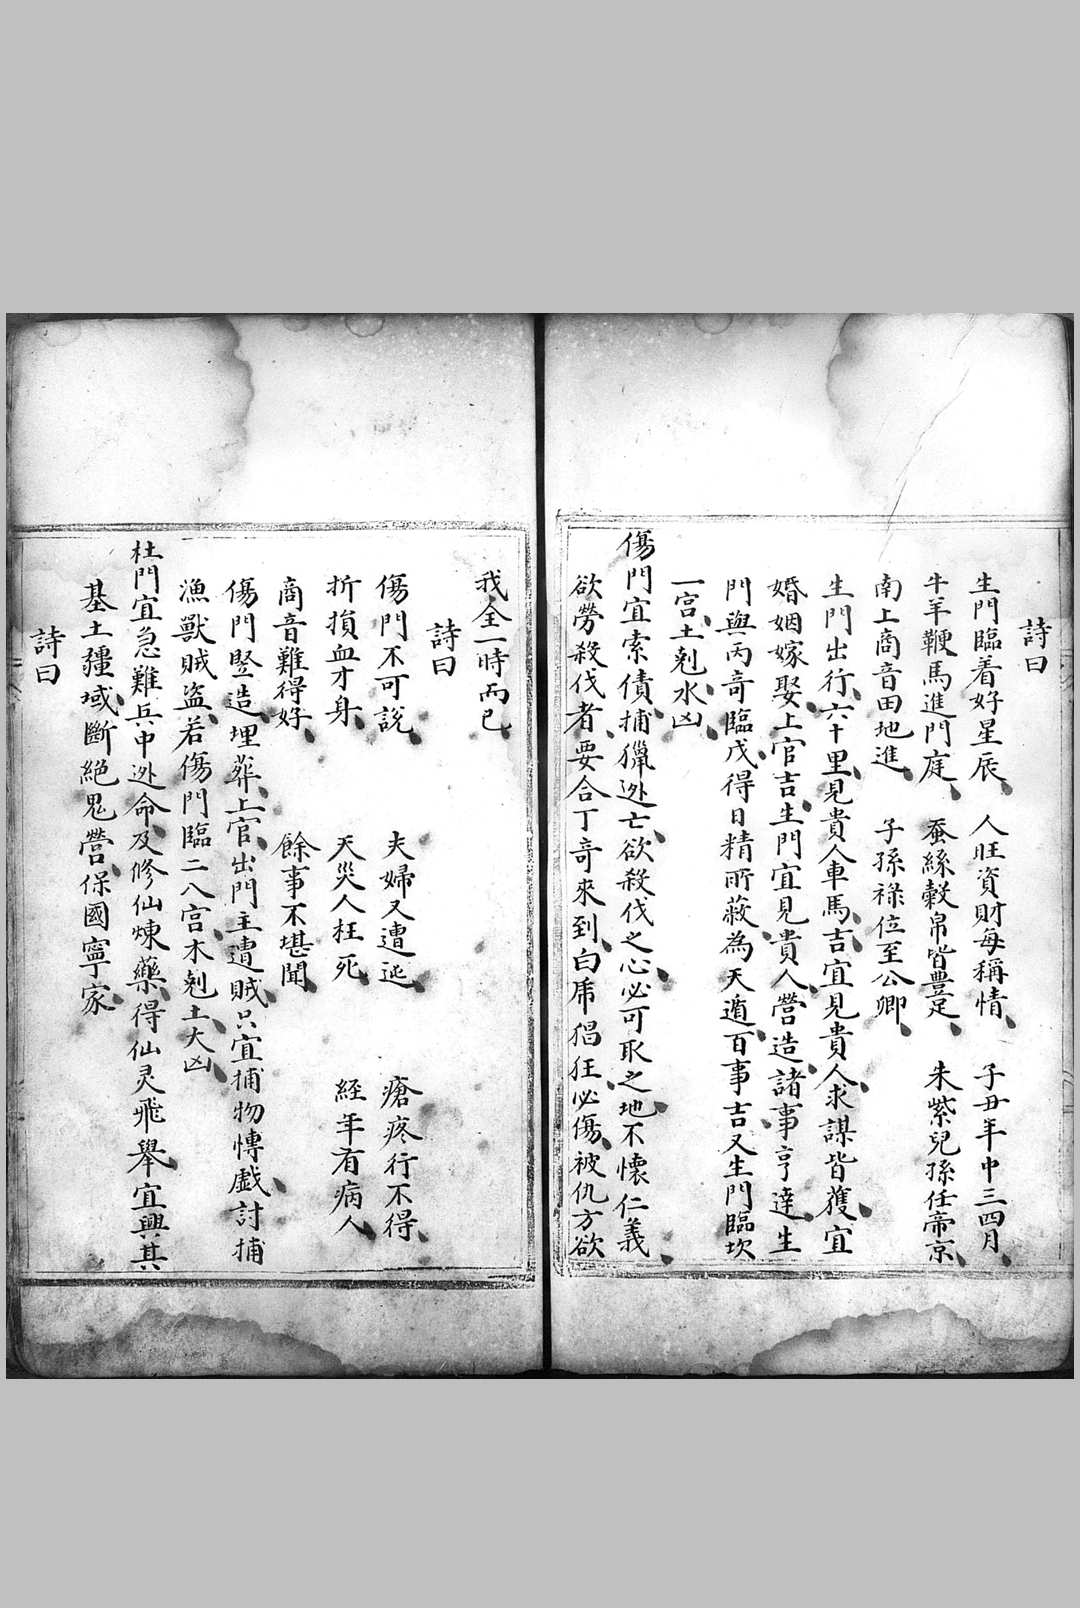 詩曰
生門臨着好星辰 人旺資財每稱情 子丑年中三四月
牛羊鞭馬進門庭 蚕絲穀帛皆豊足 朱紫兒孫任帝京
南上商音田地進 子孫祿位至公卿
生門出行六十里見貴人車馬吉宜見貴人求謀皆獲宜
婚姻嫁娶上官吉生門宜見貴人營造諸事亨達生
門與丙奇臨戊得日精所蔽為天遁百事吉又生門臨坎
一宫土剋水凶
傷門宜索債捕獵迯亡欲殺伐之心必可取之地不懷仁義
欲勞殺伐者要合丁奇來到白虎猖狂必傷被仇方欲
我全一時而已
詩曰
傷門不可說 夫婦又遭迍 瘡疼行不得
折損血才身 天災人枉死 経年有病人
商音難得好 餘事不堪聞
傷門竪造埋葬上官出門主遭賊只宜捕物慱戯討捕
漁獸賊盗若傷門臨二八宫木剋土大凶
杜門宜急難兵中迯命及修仙煉藥得仙灵飛舉宜興其
基土疆域斷絕鬼營保國寧家
詩曰